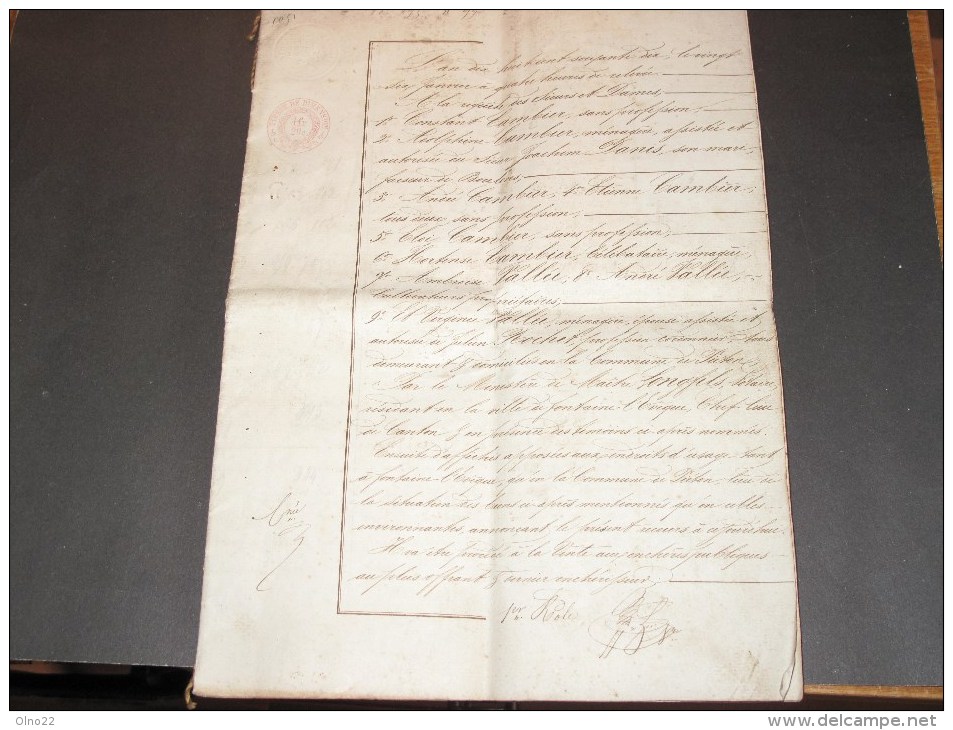 L'an dix huit cent soixante dix, le vingt
six Janvier à quatre heures de relevée
A la requête des Sieurs et Dames,
1° Constant Cambier, sans profession;
2° Adolphine Cambier, ménagère, assistée et
autorisée du Sieur Joachim Danis, son mari
faiseur de
3° André Cambier, 4° Etienne Cambier,
tous deux, sans profession;
5° Eloi Cambier, sans profession;
6° Hortense Cambier, Célibataire, ménagère,
7° Ambroise Vallée, 8° André Vallée,
Cultivateurs propriétaires,
9° Et Virginie Vallée, ménagère, épouse assistée et
autorisée de Julien Rochet, profession cordonnier, tous
demeurant & domiciliés en la Commune de Piéton,
Par le Ministère de Maître Longfils, Notaire
résidant en la ville de fontaine l'Evêque, Chef-lieu
de Canton & en présence des témoins ci-après nommés.
Ensuite d'affiches apposées aux endroits d'usage tant
à fontaine l'Evêque, qu'en la Commune de Piéton, lieu de
la situation des biens ci-après mentionnés qu'en celles
environnantes, annonçant le présent recours à cejourd'hui
Il va être procédé à la Vente aux enchères publiques
au plus offrant & dernier enchérisseur,
1er Rôle
Olno22